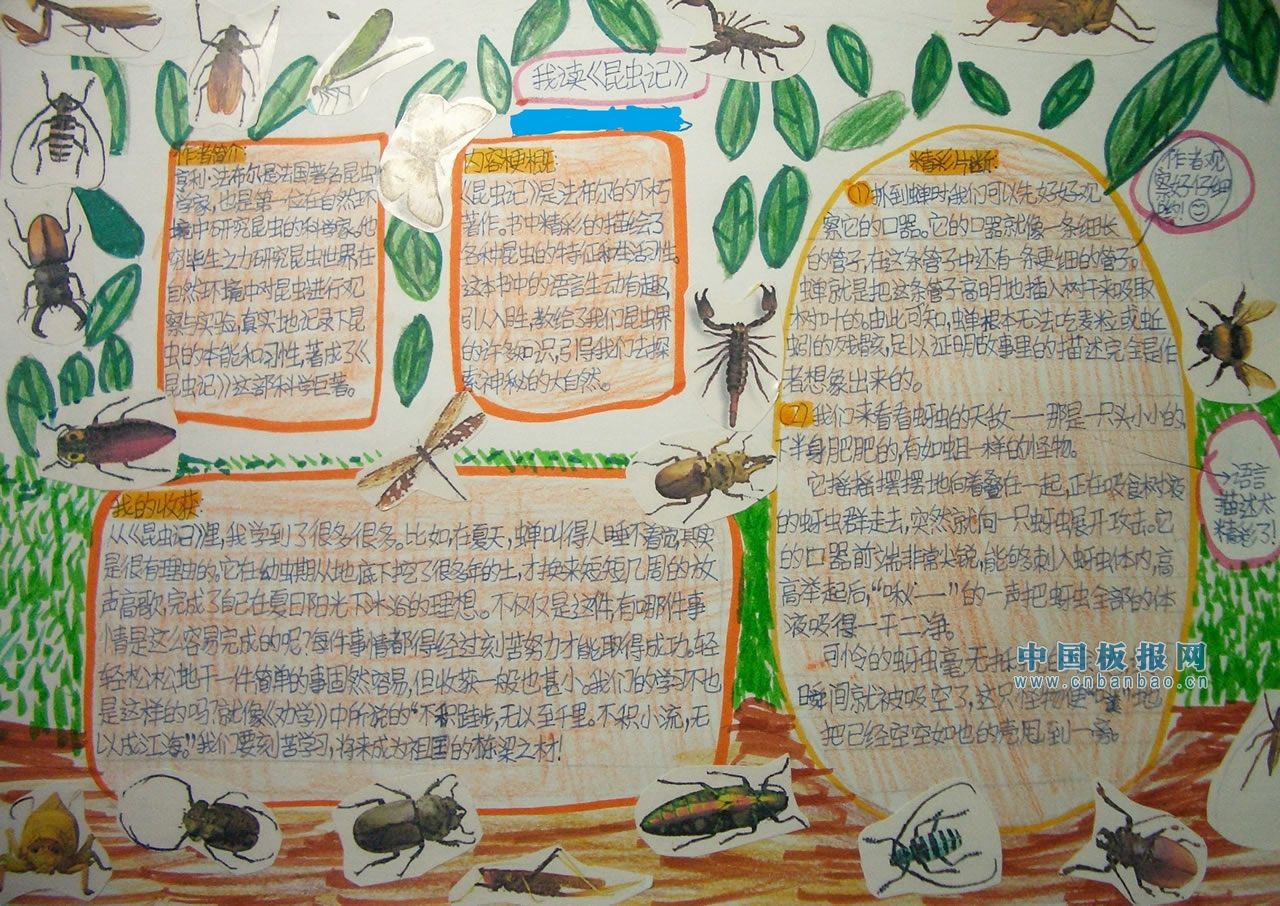 我读《昆虫记》
作者简介:
亨利·法布尔是法国著名昆虫
学家,也是第一位在自然环
境中研究昆虫的科学家。他
穷毕生之力研究昆虫世界,在
自然环境中对昆虫进行观
察与实验,真实地记录下昆
虫的本能和习性,著成了《
昆虫记》这部科学巨著。
内容梗概:
《昆虫记》是法布尔的不朽
著作。书中精彩的描绘了
各种昆虫的特征和生活习性。
这本书中的语言生动有趣,
引人入胜,教给了我们昆虫界
的许多知识,引得我们去探
索神秘的大自然。
精彩片断:
①抓到蝉时,我们可以先好好观
察它的口器。它的口器就像一条细长
的管子,在这条管子中还有一条更细的管子。
蝉就是把这条管子高明地插入树干来吸取
树叶的。由此可知,蝉根本无法吃麦粒或蚯
蚓的残骸,足以证明故事里的描述完全是作
者想象出来的。
②我们来看看蚜虫的天敌——那是一只头小小的,
下半身肥肥的,有如蛆一样的怪物。
它摇摇摆摆地向着叠在一起,正在吸食树液
的蚜虫群走去,突然就向一只蚜虫展开攻击。它
的口器前端非常尖锐,能够刺入蚜虫体内,高
高举起后,“啾——”的一声把蚜虫全部的体
液吸得一干二净。
可怜的蚜虫毫无抵
瞬间就被吸空了,这只怪物
把已经空空如也的壳甩到一旁。
作者观
察好仔细
语言
描述太
精彩了!
我的收获:
从《昆虫记》里,我学到了很多很多。比如,在夏天,蝉叫得人睡不着觉,其实
是很有理由的。它在幼虫期从地底下挖了很多年的土,才换来短短几周的放
声高歌,完成了自己在夏日阳光下沐浴的理想。不仅仅是这件,有哪件事
情是这么容易完成的呢?每件事情都得经过刻苦努力才能取得成功。轻
轻松松地干一件简单的事固然容易,但收获一般也甚小。我们的学习不也
是这样的吗?就像《劝学》中所说的“不积跬步,无以至千里。不积小流,无
以成江海。”我们要刻苦学习,将来成为祖国的栋梁之材!
中国板报网
www.cnbanbao.cn